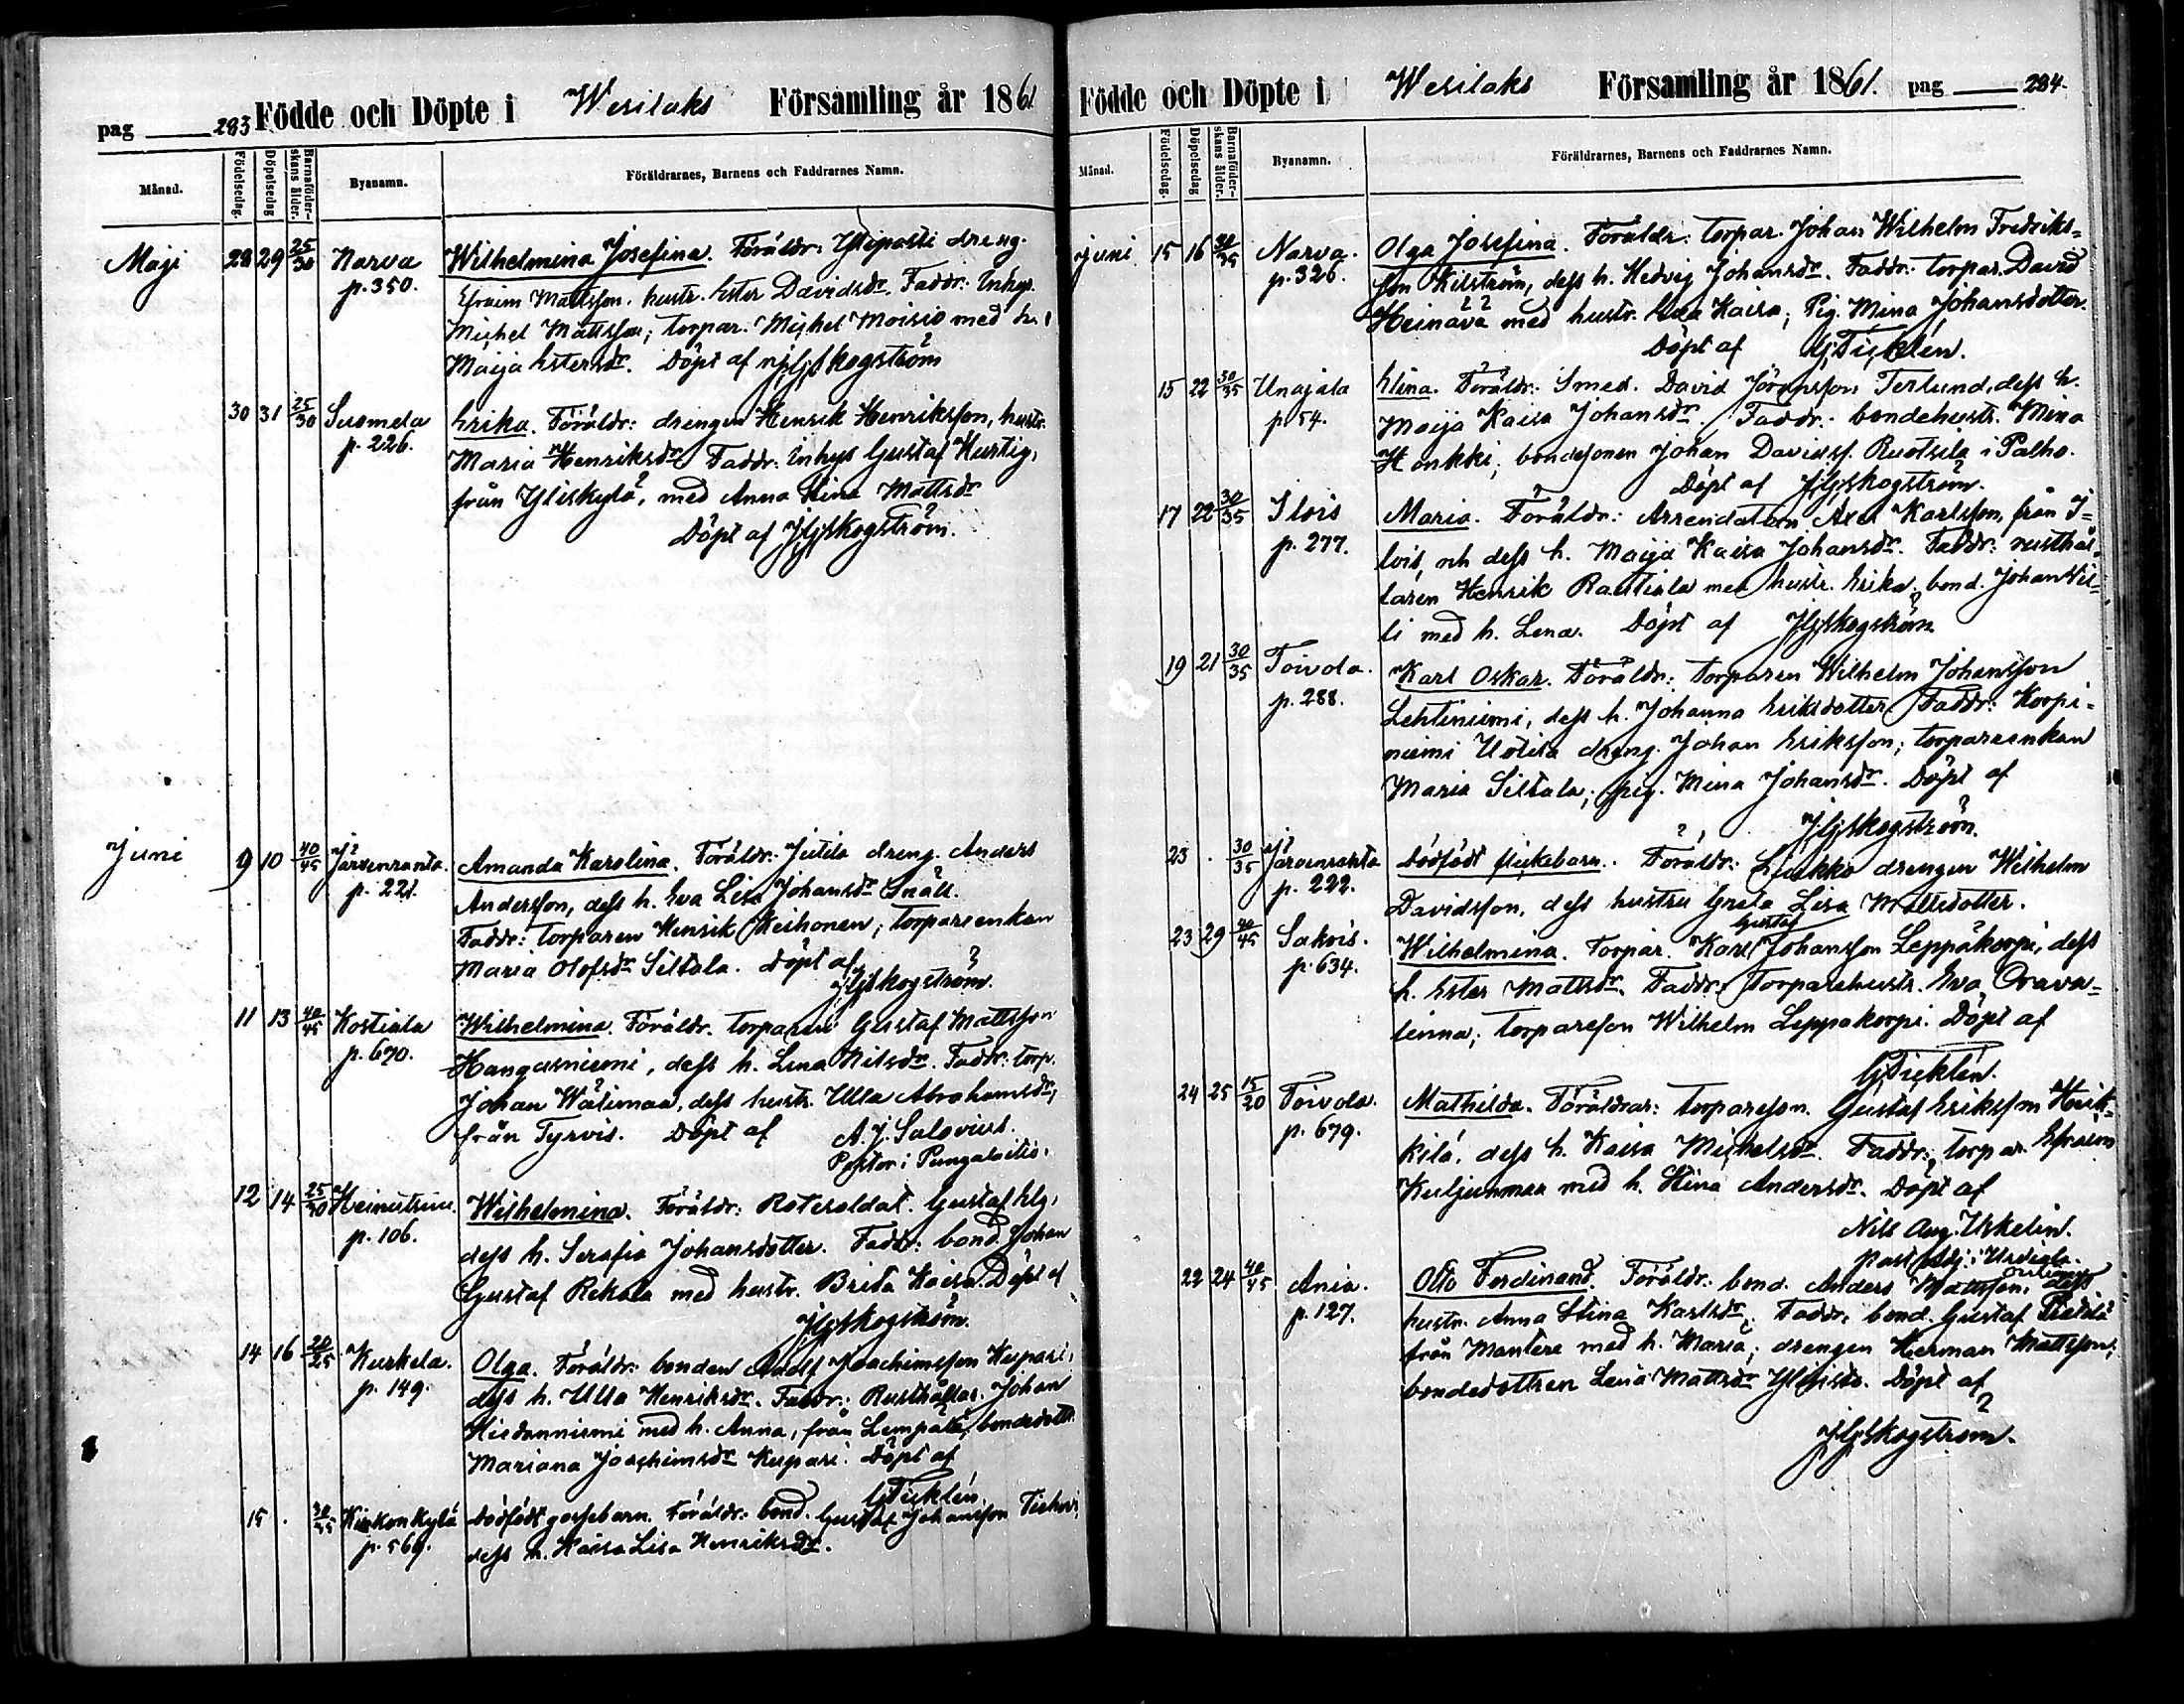 pag 283 Födde och Döpte i Wesilaks Församling år 1861
Månad. Födelsedag. Döpelsedag Barnaföderskans ålder. Byanamn. Föräldrarnes, Barnens och Faddrarnes Namn.
Maji 28 29 25/30 Narva Wilhelmina Josefina. Föräldr: Ylipassi dreng.
p. 350. Efraim Mattsson. hustr. Ester Davidsdr. Faddr: Inhys.
Michel Mattsson; torpar. Michel Moisio med h.
Maija Estersdr. Döpt af Skogström
30 31 25/30 Suomela Erika. Föräldr: drengen Henrik Henriksson, hustr.
p. 226. Maria Henriksdr. Faddr: Inhys Gustaf Hurtig,
från Yliskylä, med Anna Stina Mattsdr
Döpt af Skogström.
Juni 9 10 40/45 Järvenranta. Amanda Karolina. Föräldr: Jutila dreng. Anders
p. 221. Andersson, dess h. Eva Lisa Johansdr Snäll.
Faddr: torparen Henrik Keihonen; torpareenkan
Maria Olofsdr Siltala. Döpt af
Skogström.
11 13 40/45 Kostiala Wilhelmina. Föräldr. torparen Gustaf Mattsson
p. 670. Hangasniemi, dess h. Lena Nilsdr. Faddr: torp.
Johan Wälimaa, dess hustr. Ulla Abrahamsdr,
från Tyrvis. Döpt af A. J. Salovius.
Pastor i Pungalaitio.
12 14 25/30 Wilhelmina. Föräldr: Rotesoldat. Gustaf Elg,
p. 106. dess h. Serafia Johansdotter. Faddr: bond. Johan
Gustaf Rekola med hustr. Brita Kaisa. Döpt af
Skogström.
14 16 20/25 Kurkela. Olga. Föräldr: bonden Adolf Joachimsson Kuspari,
p. 149. dess h. Ulla Henriksdr. Faddr: Rusthållar. Johan
Hiedanniemi med h. Anna, från Lempälä, bondedottr.
Mariana Joachimsdr Kuspari. Döpt af
G Ticklén.
15 . 30/35 Kirkonkylä Dödfödt gossebarn. Föräldr: bond. Gustaf Johansson
p. 569. dess h. Kaisa Lisa Henriksdr.
Födde och Döpte i Wesilaks Församling år 1861. pag 284.
Månad. Födelsedag. Döpelsedag Barnaföderskans ålder. Byanamn. Föräldrarnes, Barnens och Faddrarnes Namn.
juni 15 16 30/35 Narva. Olga Josefina. Föräldr: torpar. Johan Wilhelm Fredriks-
p. 326. son Kilström, dess h. Hedvig Johansdr. Faddr: torpar. David
Heinävä med hustr. Eva Kaisa; Pig. Mina Johansdotter.
Döpt af G Ticklén.
15 22 30/35 Unajala Elina. Föräldr: Smed. David Jöransson Terlund, dess h.
p. 54. Maija Kaisa Johansdr. Faddr: bondehustr. Mina
Honkki; bondesonen Johan Davidss. Ruotsila i Palho.
Döpt af Skogström.
17 22 30/35 Ilois Maria. Föräldr: Arrendatorn Axel Karlsson, från I-
p. 277. lois, och dess h. Maija Kaisa Johansdr. Faddr: rusthål-
laren Henrik Rautiala med hustr. Erika; bond. Johan
li med h. Lena. Döpt af Skogström
19 21 30/35 Toivola. Karl Oskar. Föräldr: torparen Wilhelm Johansson
p. 288. Lehtiniemi, dess h. Johanna Eriksdotter. Faddr: Korpi-
niemi Uotila dreng. Johan Eriksson; torpareenkan
Maria Siltala; pig. Mina Johansdr. Döpt af
Skogström.
23 . 30/35 Järvenranta Dödfödt flickebarn. Föräldr: drengen Wilhelm
p. 222. Davidsson, dess hustru Greta Lisa Mattsdotter.
Gustaf
23 29 40/45 Sakois. Wilhelmina. Torpar. Karl Johansson Leppäkorpi, dess
p. 634. h. Ester Mattsdr. Faddr: torparehustr. Eva Orava-
linna; torpareson Wilhelm Leppäkorpi. Döpt af
G Ticklén.
24 25 15/20 Toivola. Mathilda. Föräldrar: torpareson. Gustaf Eriksson
p. 679. kilä, dess h. Kaisa Michelsdr. Faddr: torpar. Efraim
Kuljunmaa med h. Stina Andersdr. Döpt af
Nils Aug. Uskelin.
past. adj. i Urdiala.
22 24 40/45 Ania. Otto Ferdinand. Föräldr: bond. Anders Mattsson, dess
p. 127. hustr. Anna Stina Karlsdr. Faddr. bond. Gustaf
från Mantere med h. Maria; drengen Herman Mattsson;
bondedottren Lena Mattsdr Döpt af
Skogström.